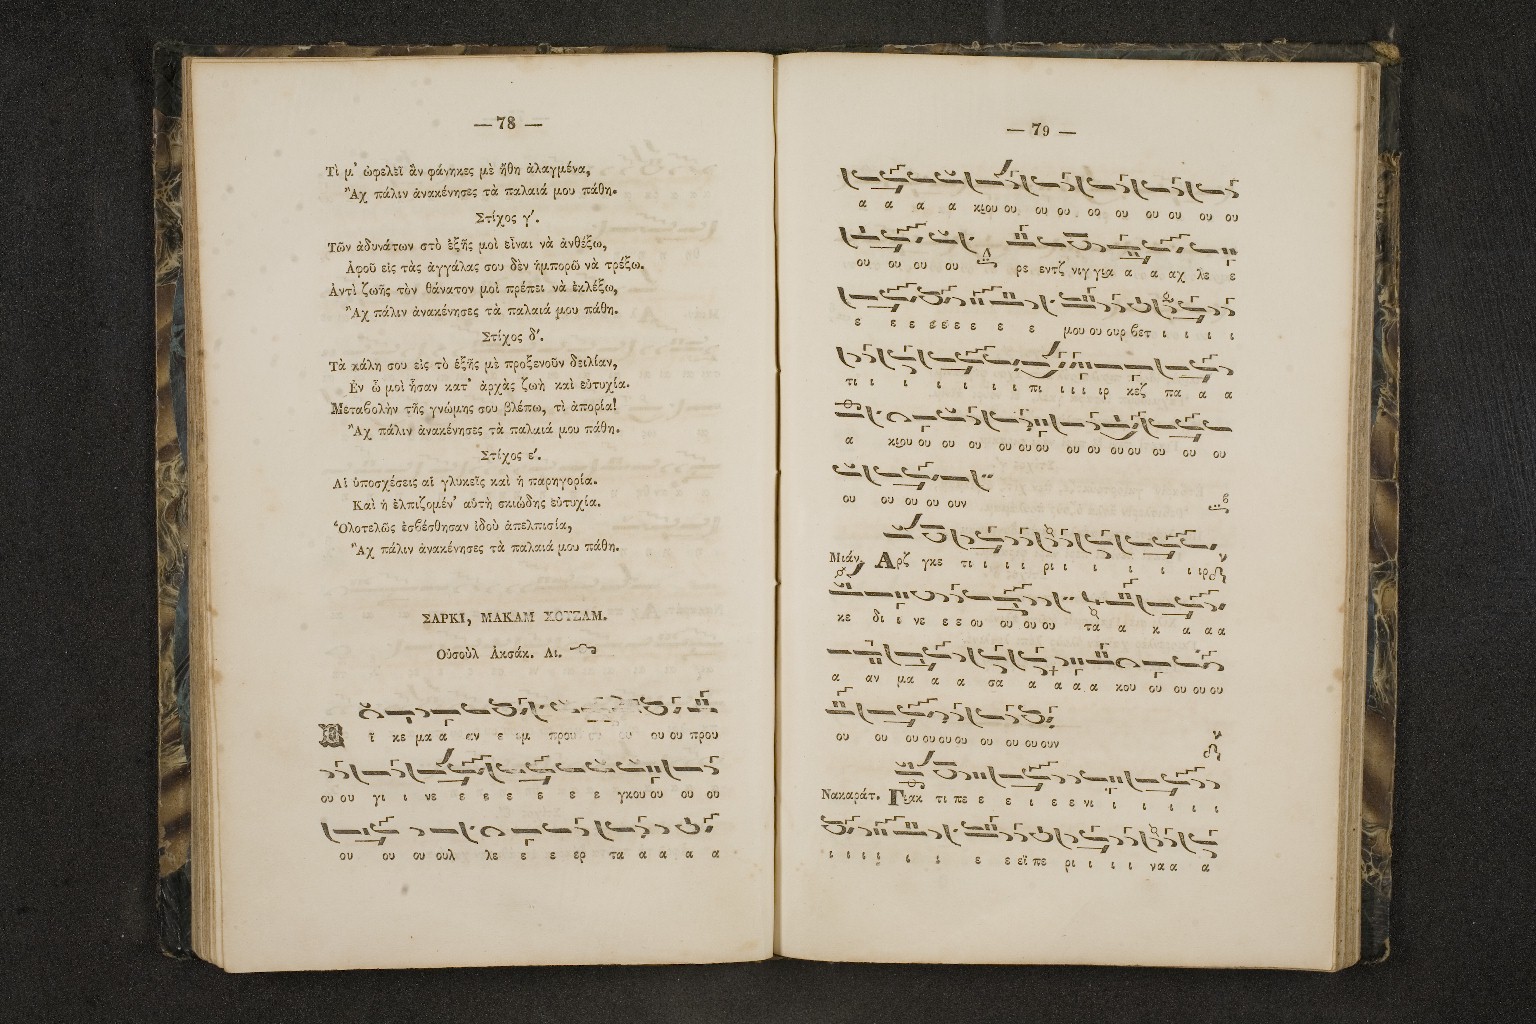 — 78 —
Τὶ μ' ὠφελεῖ ἂν φάνηκες μὲ ἤθη ἀλαγμένα,
Ἂχ πάλιν ἀνακένησες τὰ παλαιά μου πάθη.
Στίχος γ'.
Τῶν ἀδυνάτων στὸ ἑξῆς μοὶ εἶναι νὰ ἀνθέξω,
Ἀφοῦ εἰς τὰς ἀγγάλας σου δὲν ἠμπορῶ νὰ τρέξω.
Ἀντὶ ζωῆς τὸν θάνατον μοὶ πρέπει νὰ ἐκλέξω,
Ἂχ πάλιν ἀνακένησες τὰ παλαιά μου πάθη.
Στίχος δ'.
Τὰ κάλη σου εἰς τὸ ἑξῆς μὲ προξενοῦν δειλίαν,
Ἐν ᾧ μοὶ ἦσαν κατ' ἀρχὰς ζωὴ καὶ εὐτυχία.
Μεταβολὴν τῆς γνώμης σου βλέπω, τὶ ἀπορία!
Ἂχ πάλιν ἀνακένησες τὰ παλαιά μου πάθη.
Στίχος ε'.
Αἱ ὑποσχέσεις αἱ γλυκεῖς καὶ ἡ παρηγορία.
Καὶ ἡ ἐλπιζομέν' αὐτὴ σκιώδης εὐτυχία.
Ὁλοτελῶς ἐσβέσθησαν ἰδοὺ ἀπελπισία,
Ἂχ πάλιν ἀνακένησες τὰ παλαιά μου πάθη.
ΣΑΡΚΙ, ΜΑΚΑΜ ΧΟΥΖΑΜ.
Οὐσοὺλ Ἀκσάκ. Λι.
Ε ϊ κε μα α εν ε εμ πρου ου ου πρου
ου ου γι ι νε ε ε ε ε ε ε γκου ου ου ου
ου ου ου ουλ λε ε ε ερ τα α α α α
— 79 —
α α α α κιου ου ου ου οο ου ου ου ου ου
ου ου ου ου ρε εντζ νιγ για α α αχ λε ε
ε ε ε ε ε ε ε ε ε μου ου ουρ βετ ι ι ι ι
τι ι ι ι ι ι ι ι πι ι ι ι ιρ κεζ πα α α
α κιου ου ου ου ου ου ου ου ου ου ου ου ου ου
ου ου ου ου ουν
Μιάν. Αρζ γκε τι ι ι ι ρι ι ι ι ι ι ιρ
κε δι ι νε ε ε ου ου ου ου τα α κ α α α
α αν μα α α σα α α α α κου ου ου ου ου
ου ου ου ου ου ου ου ου ου ουν
Νακαράτ. Γιακ τι πε ε ε ι ε ε νι ι ι ι ι ι
ι ι ι ι ι ι ε ε εϊ πε ρι ι ι ι να α α